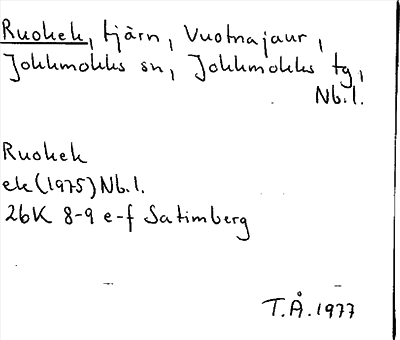 Ruokek, tjärn, Vuotnajaur,
Jokkmokks sn, Jokkmokks tg,
Nb.l.
Ruokek
ek (1975) Nb.l.
26K 8-9 e-f Satimberg
T.Å. 1977